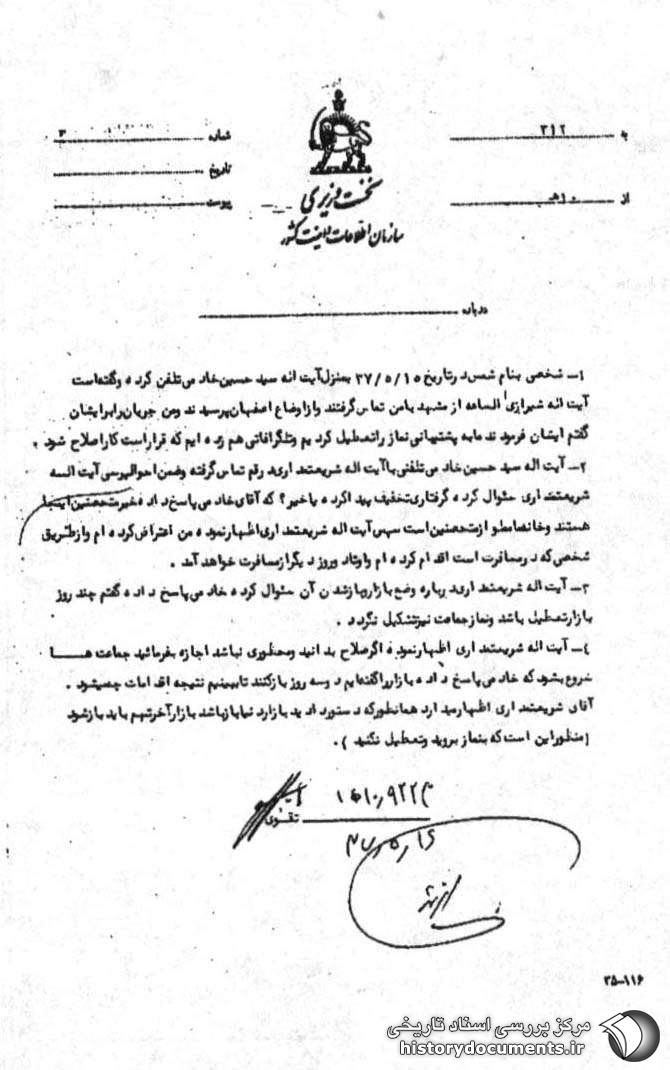 به ۳۱۲
شماره ۳
تاریخ
از ۱۰هـ
پیوست
نخست وزیری
سازمان اطلاعات و امنیت کشور
درباره
۱ـ شخصی بنام شمس درتاریخ ۳۷/۵/۱۵ بمنزل آیت اله سید حسین خادمی تلفن کرده وگفته است
آیت اله شیرازی الساعه از مشهد بامن تماس گرفتند وازاوضاع اصفهان پرسیدند ومن جریان رابرایشان
گفتم ایشان فرمودند مابه پشتیبانی نماز راتعطیل کردیم وتلگرافاتی هم زده ایم که قراراست کاراصلاح شود .
۲ـ آیت اله سید حسین خادمی تلفنی باآیت اله شریعتمداری درقم تماس گرفته وضمن احوالپرسی آیت السه
شریعتمداری سئوال کرده گرفتاری تخفیف پیداکرده یاخیر؟ که آقای خادمی پاسخ داده خیرمتحصنین اینجا
هستند وخانه مملو ازمتحصنین است سپس آیت اله شریعتمداری اظهارنموده من اعتراض کرده ام وازطریق
شخصی که درمسافرت است اقدام کرده ام واوتاد وروز دیگرازمسافرت خواهد آمد .
۳ـ آیت اله شریعتمداری درباره وضع بازاروبازشدن آن سئوال کرده خادمی پاسخ داده گفتم چند روز
بازارتعطیل باشد ونمازجماعت نیزتشکیل نگردد .
٤ـ آیت اله شریعتمداری اظهارنموده اگرصلاح بدانید ومحظوری نباشد اجازه بفرمائید جماعت هـا
شروع بشود که خادمی پاسخ داده بازارراگفته ایم دوسه روز بازکنند تاببینیم نتیجه اقدامات چه میشود .
آقای شریعتمداری اظهارمیدارد همانطورکه دستورداد ید بازارد نیابازباشد بازارآخرتهم باید بازشود
(منظوراین است که بنماز بروید وتعطیل نکنید ) .
تقوی
۳۵-۱۱۶
مرکز بررسی اسناد تاریخی
historydocuments.ir